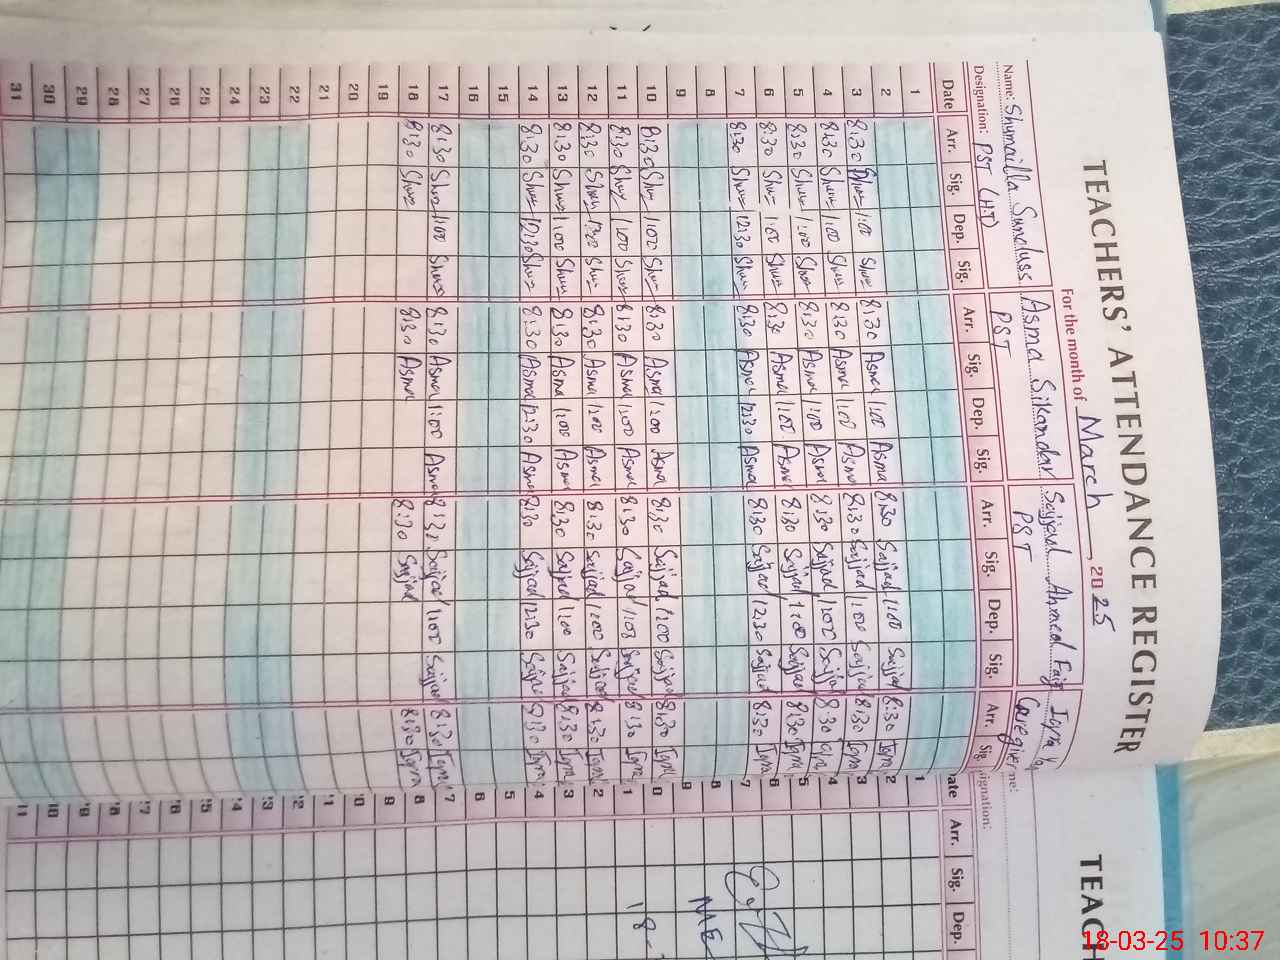 TEACHERS' ATTENDANCE REGISTER
For the month of March 2025
Name: Shumailla Sunduss Asma Sikandar Sajjad Ahmed Faiz Iqra
Designation: PST (HT) PST PST Caregiver
Date Arr. Sig. Dep. Sig. Arr. Sig. Dep. Sig. Arr. Sig. Dep. Sig. Arr. Sig.
1
2
3 8:30 Shum 1:00 Shum 8:30 Asma 1:00 Asma 8:30 Sajjad 1:00 Sajjad 8:30 Iqra
4 8:30 Shum 1:00 Shum 8:30 Asma 1:00 Asma 8:30 Sajjad 1:00 Sajjad 8:30 Iqra
5 8:30 Shum 1:00 Shum 8:30 Asma 1:00 Asma 8:30 Sajjad 1:00 Sajjad 8:30 Iqra
6 8:30 Shum 1:00 Shum 8:30 Asma 1:00 Asma 8:30 Sajjad 1:00 Sajjad 8:30 Iqra
7 8:30 Shum 12:30 Shum 8:30 Asma 12:30 Asma 8:30 Sajjad 12:30 Sajjad 8:30 Iqra
8
9
10 8:30 Shum 1:00 Shum 8:30 Asma 1:00 Asma 8:30 Sajjad 1:00 Sajjad 8:30 Iqra
11 8:30 Shum 1:00 Shum 8:30 Asma 1:00 Asma 8:30 Sajjad 1:00 Sajjad 8:30 Iqra
12 8:30 Shum 1:00 Shum 8:30 Asma 1:00 Asma 8:30 Sajjad 1:00 Sajjad 8:30 Iqra
13 8:30 Shum 1:00 Shum 8:30 Asma 1:00 Asma 8:30 Sajjad 1:00 Sajjad 8:30 Iqra
14 8:30 Shum 12:30 Shum 8:30 Asma 12:30 Asma 8:30 Sajjad 12:30 Sajjad 8:30 Iqra
15
16
17 8:30 Shum 1:00 Shum 8:30 Asma 1:00 Asma 8:30 Sajjad 1:00 Sajjad 8:30 Iqra
18 8:30 Shum 8:30 Asma 8:30 Sajjad 8:30 Iqra
19
20
21
22
23
24
25
26
27
28
29
30
31
TEACH
me:
signation:
ate Arr. Sig. Dep.
1
2
3
4
5
6
7
8 MAE
9
0
1 18-
2
3
4
5
6
7
8
9
18-03-25 10:37